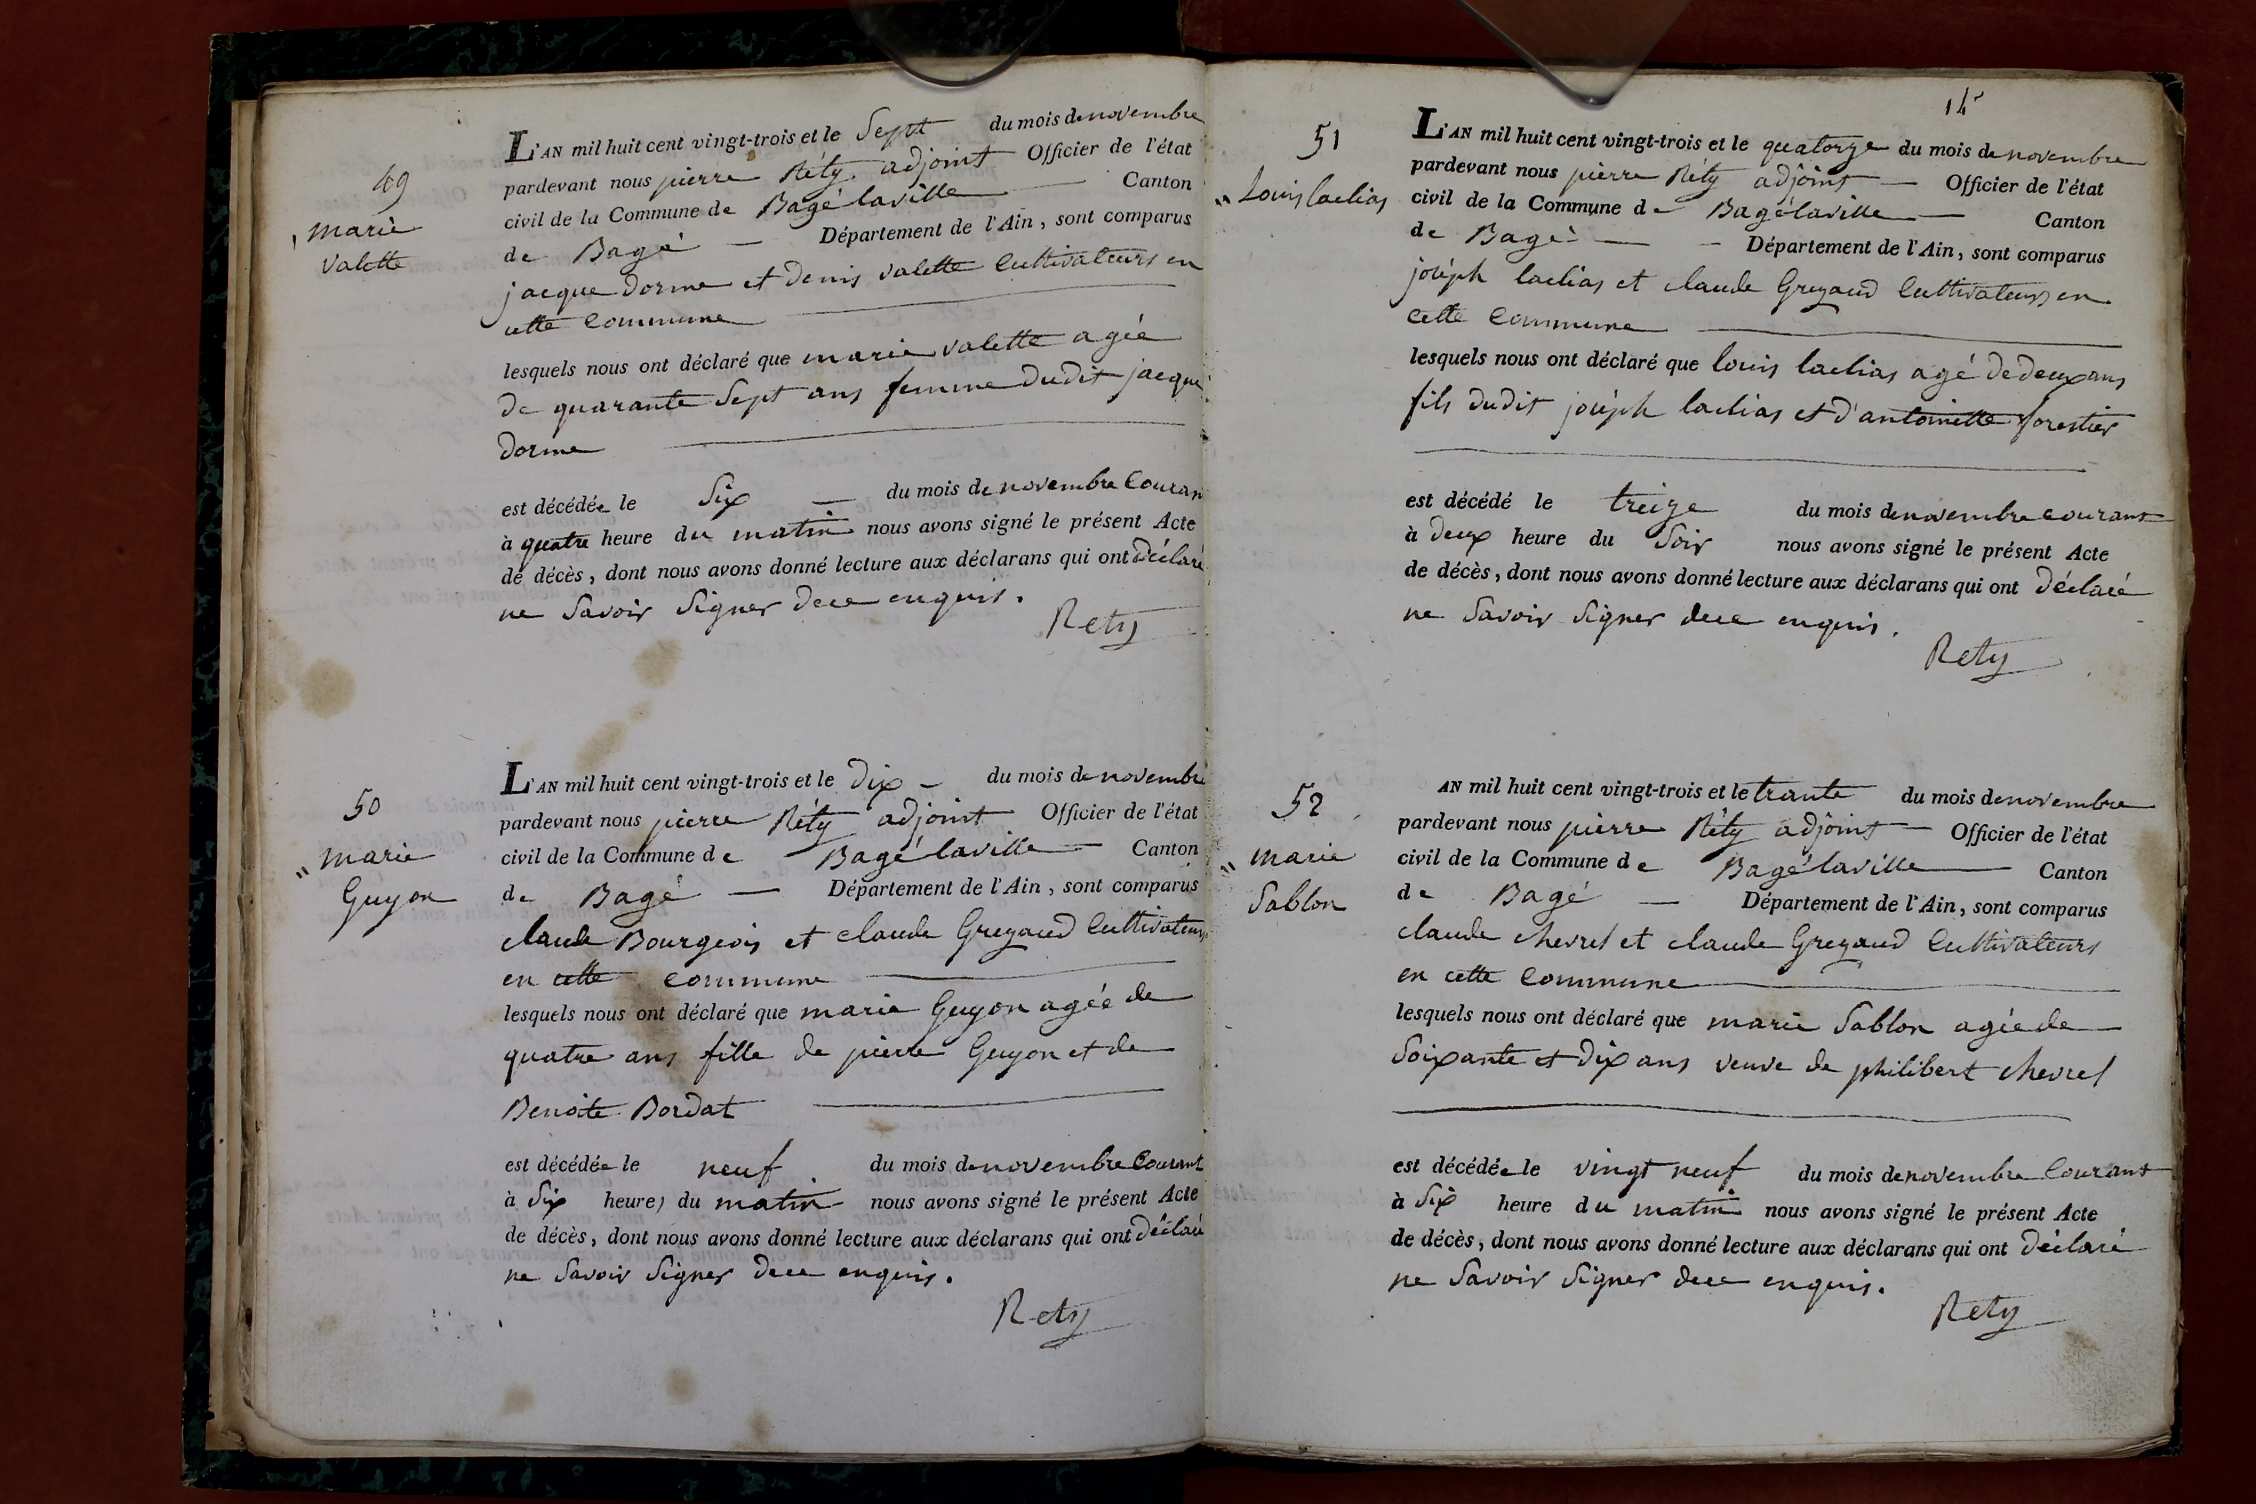 49
marie
valette
L'AN mil huit cent vingt-trois et le Sept du mois de novembre
pardevant nous pierre Réty adjoint Officier de l'état
civil de la Commune de Bagé laville Canton
de Bagé Département de l'Ain, sont comparus
jacque dorme et denis valette Cultivateurs en
cette Commune
lesquels nous ont déclaré que marie valette agée
de quarante Sept ans femme dudit jacque
dorme
est décédée le Six du mois de novembre Couran
à quatre heure du matin nous avons signé le présent Acte
de décès, dont nous avons donné lecture aux déclarans qui ont déclaré
ne Savoir Signer dece enquis.
Rety
50
marie
Guyon
L'AN mil huit cent vingt-trois et le dix du mois de novembre
pardevant nous pierre Réty adjoint Officier de l'état
civil de la Commune de Bagé laville Canton
de Bagé Département de l'Ain, sont comparus
claude Bourgeois et claude Grezaud Cultivateurs
en cette commune
lesquels nous ont déclaré que marie Guyon agée de
quatre ans fille de pierre Guyon et de
Benoite Bordat
est décédée le neuf du mois de novembre Courant
à Six heures du matin nous avons signé le présent Acte
de décès, dont nous avons donné lecture aux déclarans qui ont déclaré
ne Savoir Signer dece enquis.
Rety
14
51
Louis laclias
L'AN mil huit cent vingt-trois et le quatorze du mois de novembre
pardevant nous pierre Réty adjoint Officier de l'état
civil de la Commune de Bagé laville Canton
de Bagé Département de l'Ain, sont comparus
joséph laclias et claude Grezaud Cultivateurs en
cette Commune
lesquels nous ont déclaré que louis laclias agé de deux ans
fils dudit joséph laclias et d'antoinette forestier
est décédé le treize du mois de novembre courant
à deux heure du Soir nous avons signé le présent Acte
de décès, dont nous avons donné lecture aux déclarans qui ont déclaré
ne Savoir Signer dece enquis.
Rety
52
marie
Sablon
AN mil huit cent vingt-trois et le trante du mois de novembre
pardevant nous pierre Réty adjoint Officier de l'état
civil de la Commune de Bagé laville Canton
de Bagé Département de l'Ain, sont comparus
claude chevrel et claude Grezaud Cultivateurs
en cette Commune
lesquels nous ont déclaré que marie Sablon agée de
Soixante et dix ans veuve de philibert chevrel
est décédée le vingt neuf du mois de novembre Courant
à Six heure du matin nous avons signé le présent Acte
de décès, dont nous avons donné lecture aux déclarans qui ont déclaré
ne Savoir Signer dece enquis.
Rety